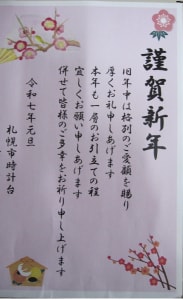 謹賀新年
旧年中は格別のご愛顧を賜り
厚くお礼申しあげます
本年も一層のお引立ての程
宜しくお願い申しあげます
併せて皆様のご多幸をお祈り申し上げます
令和七年元旦
札幌市時計台